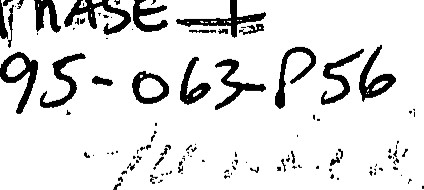 PHASE I
95-063-P56